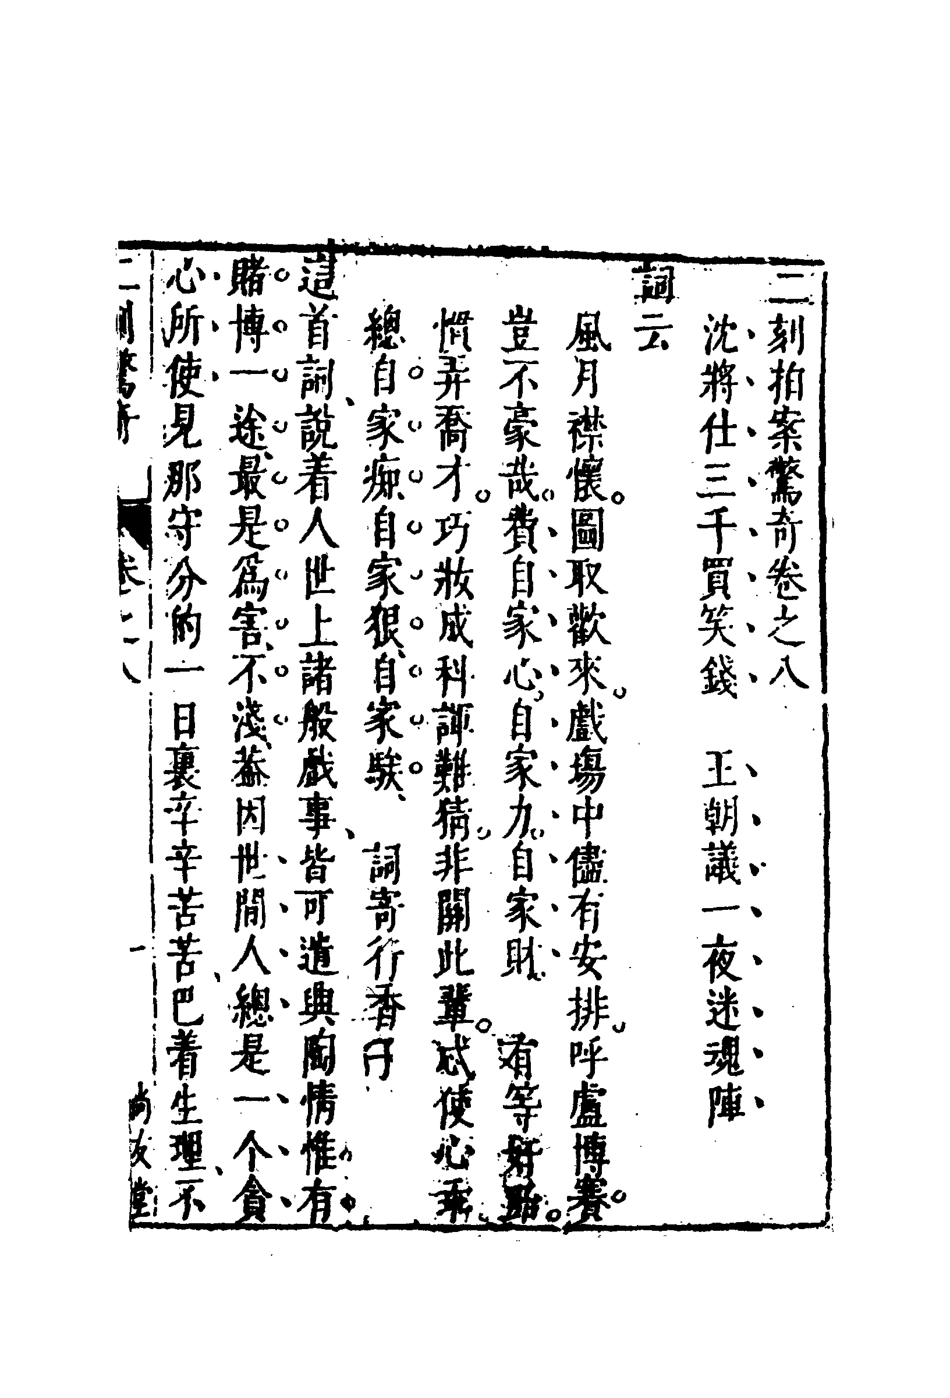 二刻拍案驚奇卷之八
沈將仕三千買笑錢　王朝議一夜迷魂陣
詞云
風月襟懷。圖取歡來。戲場中儘有安排。呼盧博賽。
豈不豪哉。費自家心、自家力、自家財　有等奸黠。
慣弄喬才。巧妝成科諢難猜。非關此輩。忒使心乖。
總自家痴、自家狠、自家騃、　詞寄行香子
這首詞、說着人世上諸般戲事、皆可遣興陶情惟有
賭博一途、最是爲害、不淺、葢因世間人總是一个貪
心所使見那守分的一日裏辛辛苦苦、巴着生理、不
二刻驚奇　卷之八　一　尚友堂